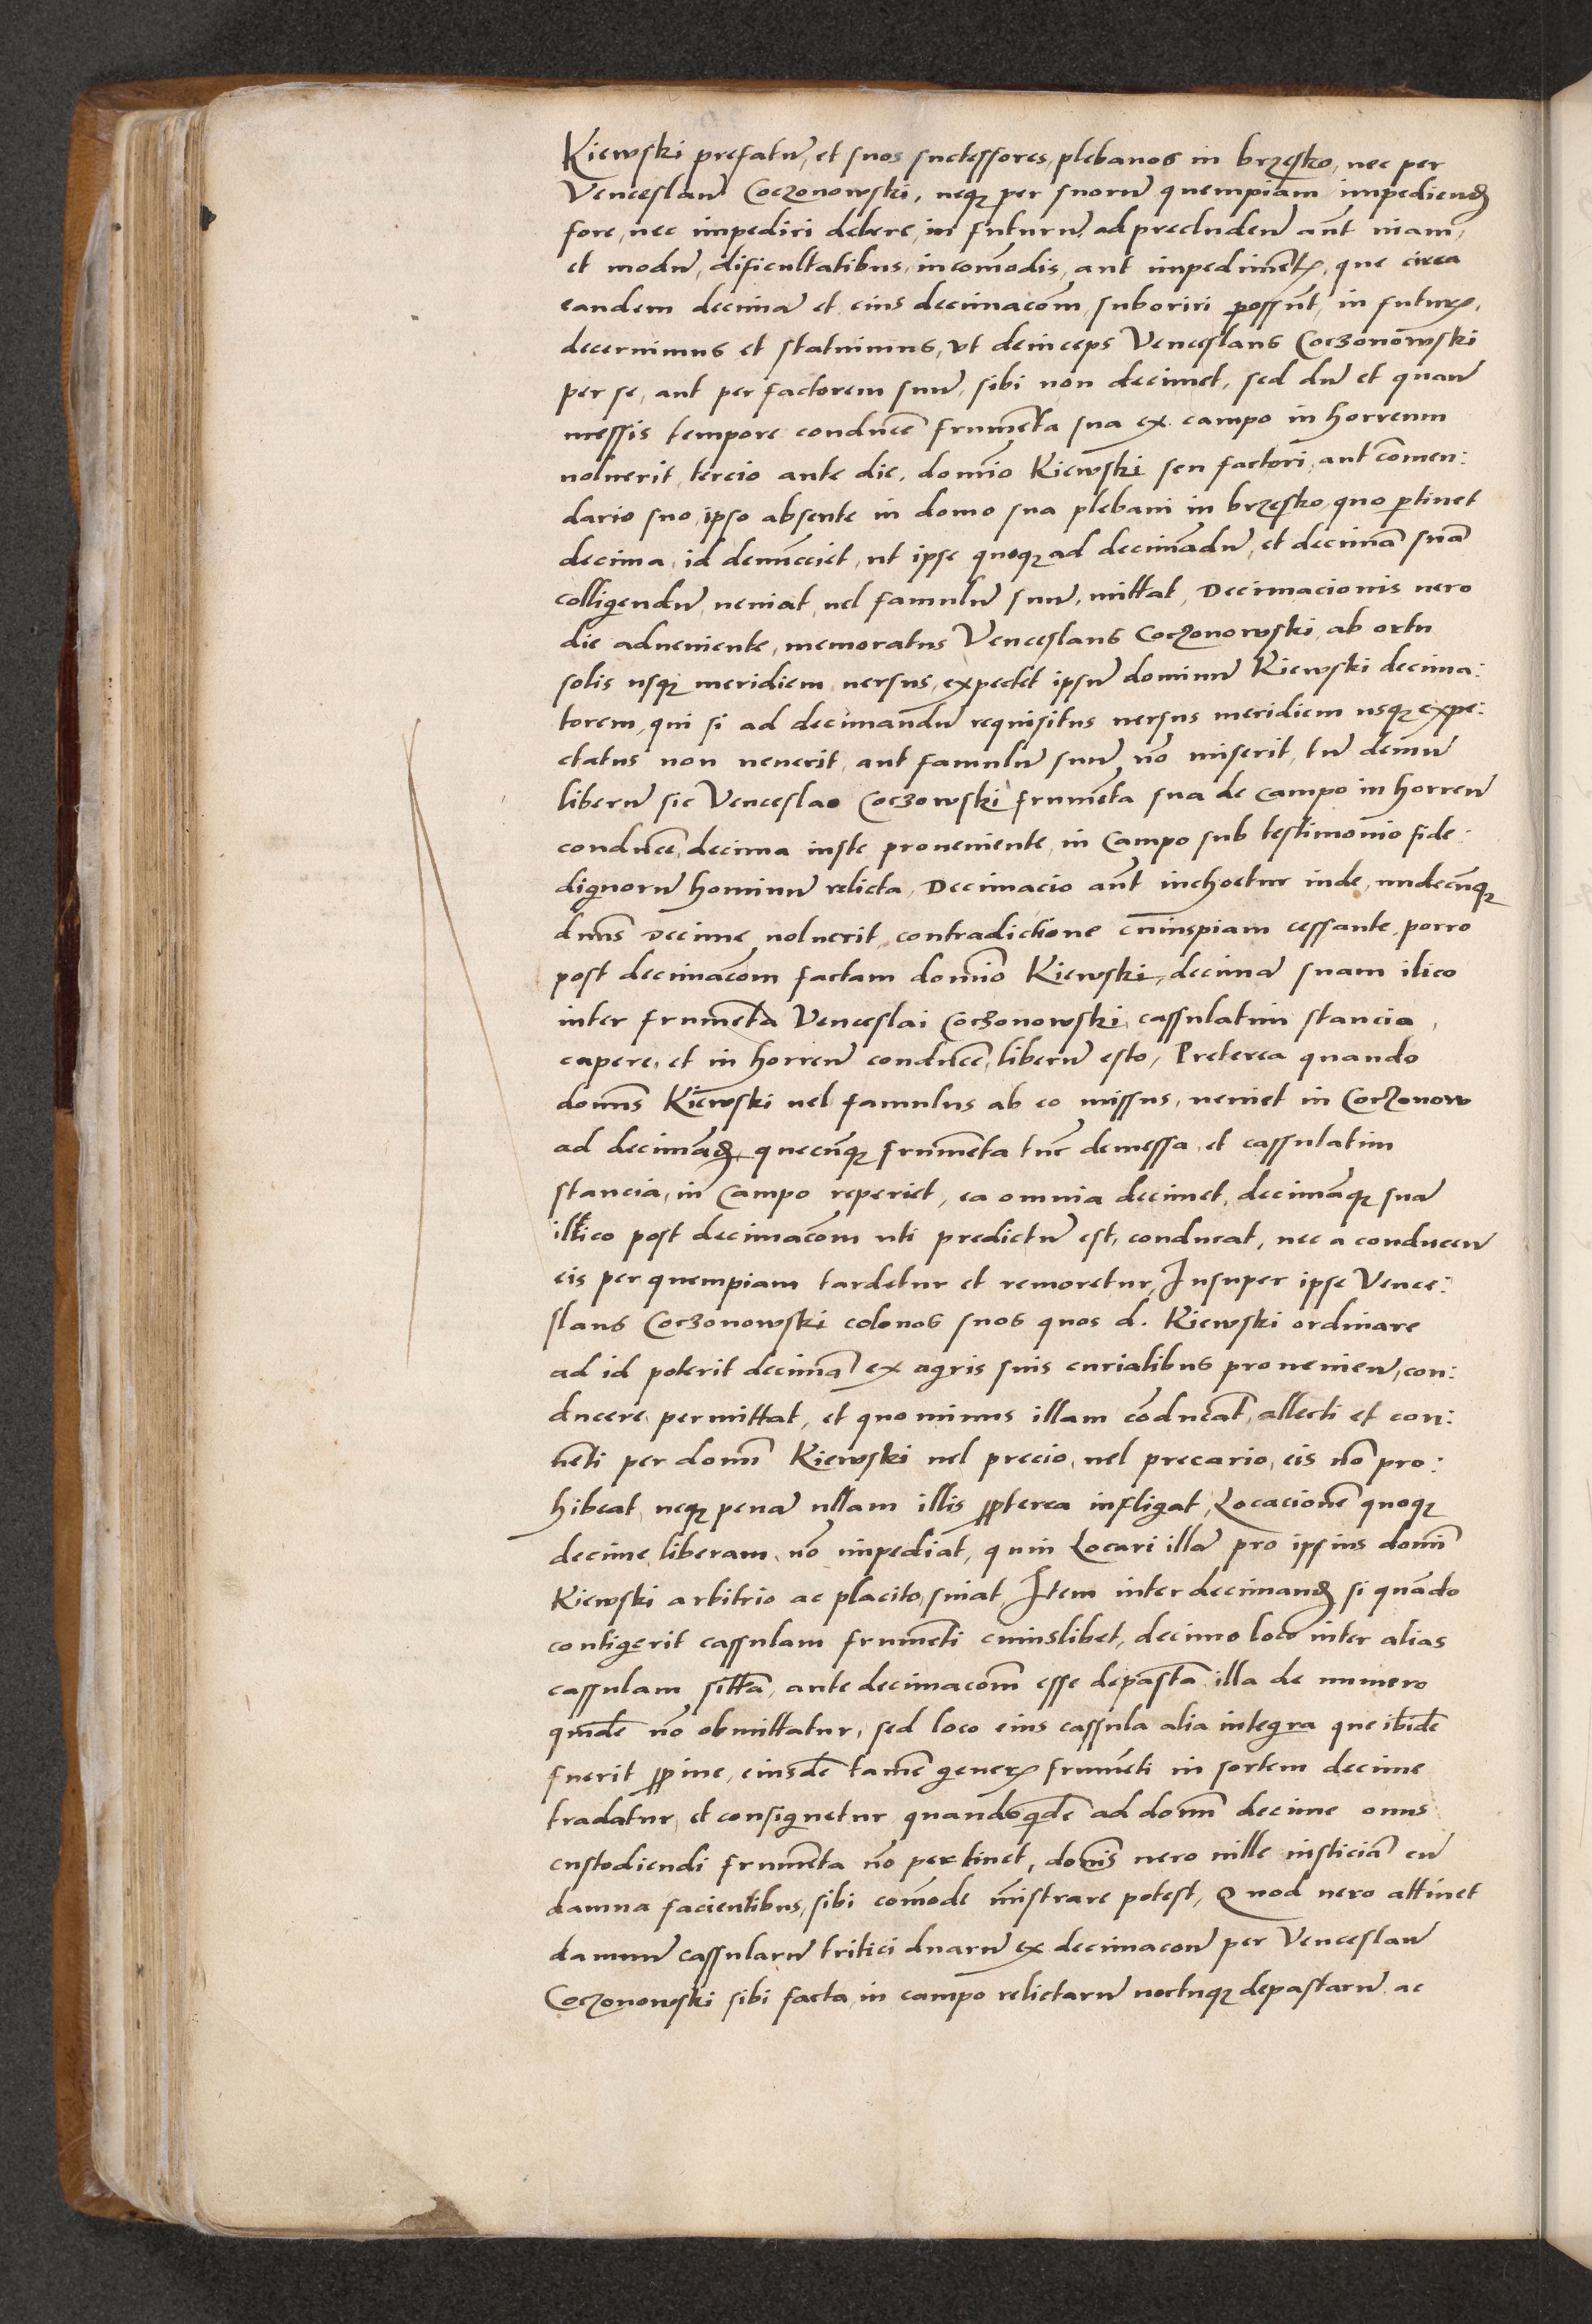 Kiewski prefatū, et suos successores, plebanos in brzesko, nec per
Venceslaū Coczonowski, neqꝫ per suorū quempiam impediend̄
fore, nec impediri debere, in futurū, ad precludendū aūt uiam,
et modū, dificultatibus, incom̄odis, aut impedimētꝭ, que circa
eandem decimā et eius decimacōm, suboriri possūnt, in futurꝭ,
decernimus et statuimus, vt deinceps Venceslaus Coczonowski
per se, aut per factorem suū, sibi non decimet, sed dū et quan̄
messis tempore conducē frumēta sua ex campo in horreum
uoluerit, tercio ante die, domīo Kiewski seu factori, aut cōmen:
dario suo, ipso absente in domo sua plebani in brzesko, quo ꝑtinet
decima, id denūcciet, ut ipse quoqꝫ ad decimādū, et decimā suā
colligendū, ueniat, uel famulū suū, mittat, Decimacionis uero
die adueniente, memoratus Venceslaus Coczonowski, ab ortu
solis usqꝫ meridiem, uersus, expectet ipsū dominū Kiewski decima:
torem, qui si ad decimandū requisitus uersus meridiem usqꝫ expe:
ctatus non uenerit, aut famulū suū, nō miserit, tū demū
liberū sit Venceslao Coczowski frumēta sua de campo in horreū
conducē, decima iuste proueniente, in Campo sub testimonio fide:
dignorū hominū relicta, Decimacio aūt inchoetur inde, undecūqꝫ
dn̄us decime uoluerit, contradictione cuiuspiam cessante, porro
post decimacōm factam domīo Kiewski, decimā suam ilico
inter frumēta Venceslai Coczonowski, cassulatim stancia,
capere, et in horreū conducē, liberū esto, Preterea quando
domn̄s Kiewski uel famulus ab eo missus, ueniet in Coczonow
ad decimād̄, quecūqꝫ frumenta tūc demessa, et cassulatim
stancia, in Campo reperiet, ea omnia decimet, decimāqꝫ suā
illico post decimacōm uti predictū est, conducat, nec a conducen̄
eis per quempiam tardetur et remoretur, Insuper ipse Vence:
slaus Coczonowski colonos suos quos d. Kiewski ordinare
ad id poterit decimā ex agris suis curialibus prouenien̄, con:
ducere, permittat, et quo minus illam cōducāt, allecti et con:
uēti per domn̄ Kiewski uel precio, uel precario, eis nō pro:
hibeat, neqꝫ penā ullam illis ꝓpterea infligat, Locacionē quoqꝫ
decime, liberam, nō impediat, quin Locari illā pro ipsius domī
Kiewski arbitrio ac placito, sinat, Item inter decimand̄ si quādo
contigerit cassulam frumēti cuiuslibet, decimo loco inter alias
cassulam sittā, ante decimacōm esse depastā, illa de numero
quidē nō obmittatur, sed loco eius cassula alia integra que ibidē
fuerit ꝓpinc, eiusdē tamē generꝭ frumēti in sortem decime
tradatur, et consignetur quandoqidē ad domn̄ decime onus
custodiendi frumēta nō pertinet, domn̄s uero uille iusticiā cū
damna facientibus, sibi com̄ode mīstrare potest, Quod uero attinet
damnū cassularū tritici duarū ex decimacon̄ per Venceslaū
Coczonowski sibi facta, in campo relictarū noctuqꝫ depastarū ac